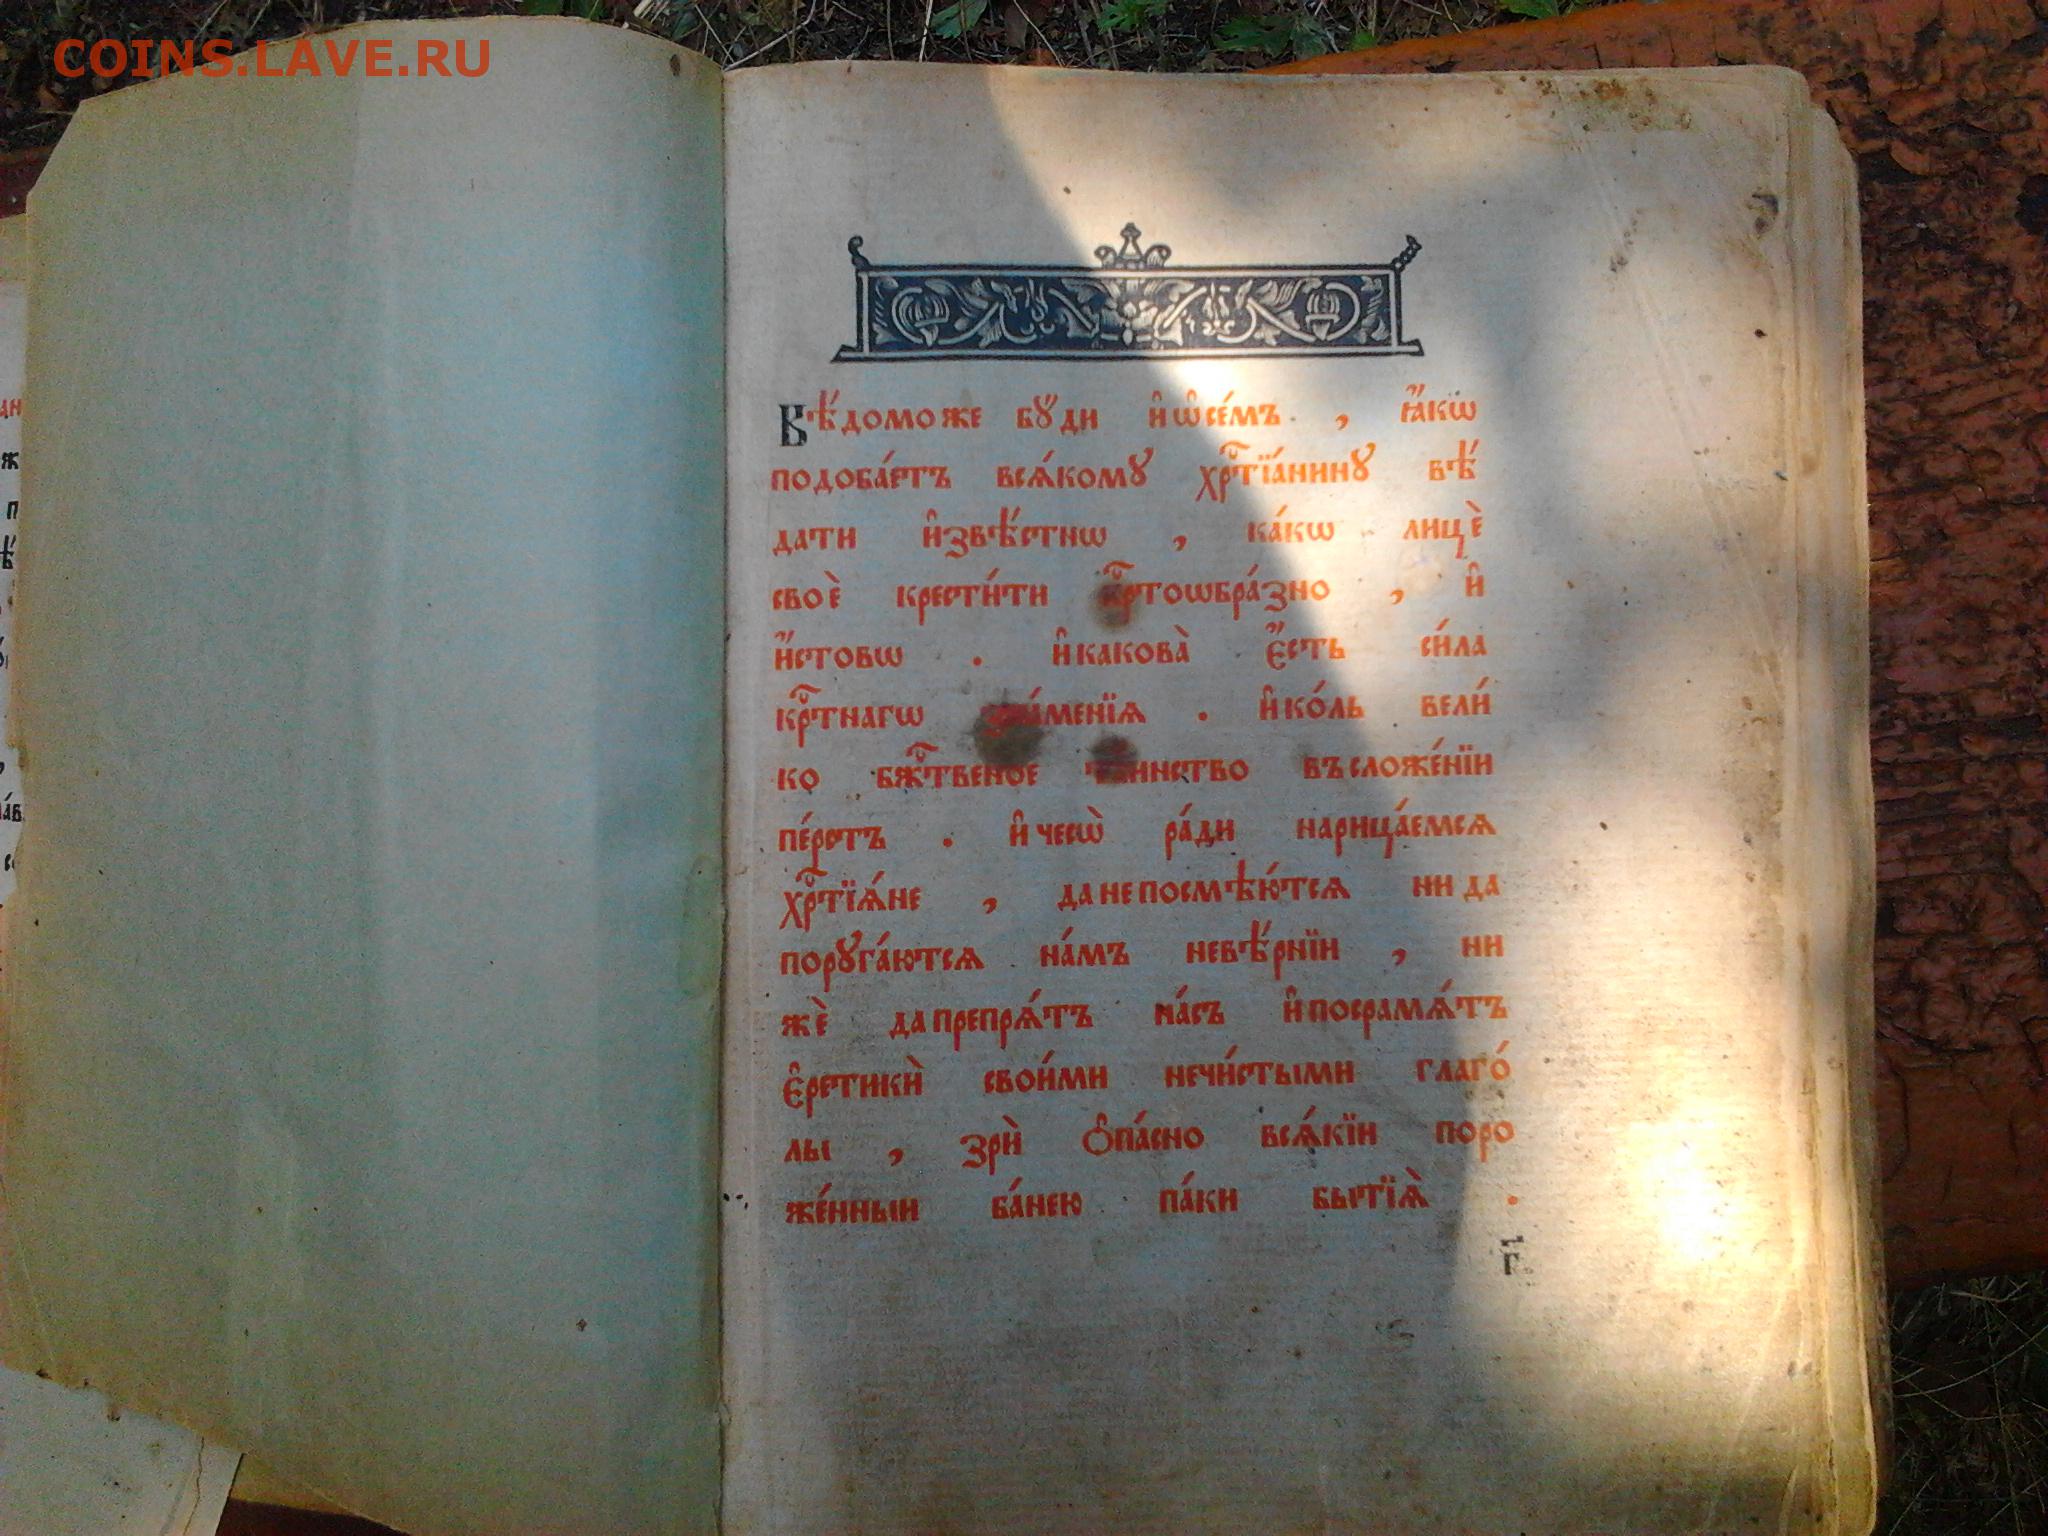 COINS.LAVE.RU
Вѣ́домо же бꙋ́ди и҆ ѡ҆ се́мъ , ꙗ҆́кѡ
подоба́етъ вся́комꙋ хрⷭ҇тїа́нинꙋ вѣ́
дати и҆звѣ́стнѡ , ка́кѡ лицѐ
своѐ крести́ти крⷭ҇тоѡбра́зно , и҆
и҆́стовѡ . и҆ какова̀ є҆́сть си́ла
крⷭ҇тнагѡ зна́менїѧ . и҆ ко́ль вели́
ко бжⷭ҇твеное таинство въ сложе́нїи
пе́рстъ . и҆ чесѡ̀ ра́ди нарица́емсѧ
хрⷭ҇тїѧ́не , да не посмѣю́тсѧ ни да
порꙋга́ютсѧ на́мъ невѣ́рнїи , ни
жѐ да препрѧ́тъ на́съ и҆ посрамѧ́тъ
є҆ретикѝ свои́ми нечи́стыми глаго́
лы , зрѝ ѻ҆па́сно всѧ́кїи поро
же́нныи ба́нею па́ки бытїѧ̀ .
г҃